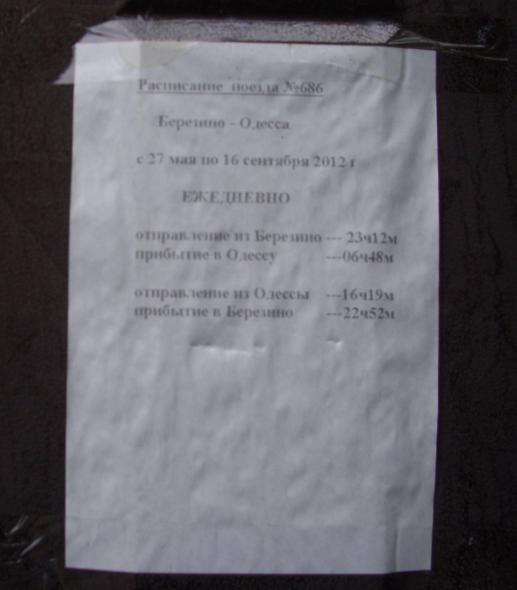 Расписание поезда №686
Березино - Одесса
с 27 мая по 16 сентября 2012 г
ЕЖЕДНЕВНО
отправление из Березино --- 23ч12м
прибытие в Одессу ---06ч48м
отправление из Одессы ---16ч19м
прибытие в Березино ---22ч52м